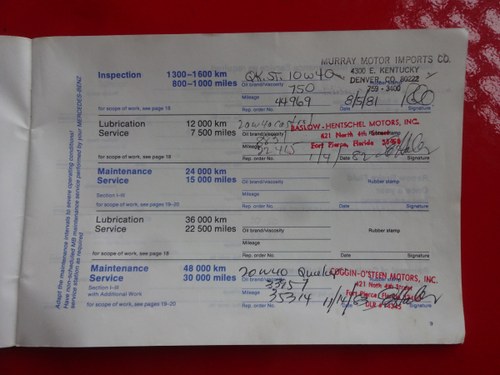 Adapt the maintenance intervals to severe operating conditions!
Have non-scheduled MB maintenance service performed by your MERCEDES-BENZ
service station as required
Inspection 1300–1600 km
800–1000 miles
for scope of work, see page 18
QK. ST. 10W40
Oil brand/viscosity
750
Mileage
44969
Rep. order No.
MURRAY MOTOR IMPORTS CO.
4300 E. KENTUCKY
DENVER, CO. 80222
759-3400
8/5/81
Date
Signature
Lubrication 12 000 km
Service 7 500 miles
for scope of work, see page 18
20W40
Oil brand/viscosity
Mileage
Rep. order No.
BASLOW-HENTSCHEL MOTORS, INC.
821 North 4th Street
Fort Pierce, Florida
Date
Signature
Maintenance 24 000 km
Service 15 000 miles
Section I–III
for scope of work, see pages 19–20
Oil brand/viscosity
Mileage
Rep. order No.
Rubber stamp
Date
Signature
Lubrication 36 000 km
Service 22 500 miles
for scope of work, see page 18
Oil brand/viscosity
Mileage
Rep. order No.
Rubber stamp
Date
Signature
Maintenance 48 000 km
Service 30 000 miles
Section I–III
with Additional Work
for scope of work, see pages 19–20
20W40
Oil brand/viscosity
Mileage
35314
Rep. order No.
O'STEEN MOTORS, INC.
Signature